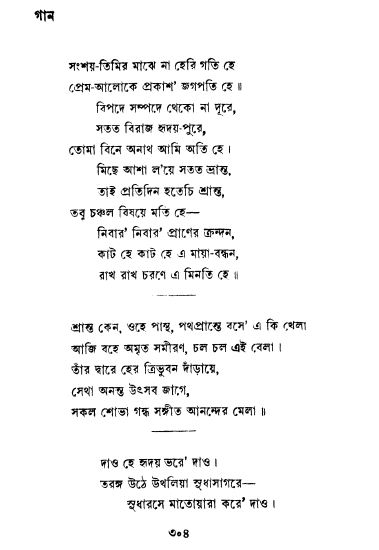 গান
সংশয়-তিমির মাঝে না হেরি গতি হে
প্রেম-আলোকে প্রকাশ' জগপতি হে॥
বিপদে সম্পদে থেকো না দূরে,
সতত বিরাজ হৃদয়-পুরে,
তোমা বিনে অনাথ আমি অতি হে।
মিছে আশা ল'য়ে সতত ভ্রান্ত,
তাই প্রতিদিন হতেচি শ্রান্ত,
তবু চঞ্চল বিষয়ে মতি হে—
নিবার' নিবার' প্রাণের ক্রন্দন,
কাট হে কাট হে এ মায়া-বন্ধন,
রাখ রাখ চরণে এ মিনতি হে॥
শ্রান্ত কেন, ওহে পান্থ, পথপ্রান্তে বসে' এ কি খেলা
আজি বহে অমৃত সমীরণ, চল চল এই বেলা।
তাঁর দ্বারে হের ত্রিভুবন দাঁড়ায়ে,
সেথা অনন্ত উৎসব জাগে,
সকল শোভা গন্ধ সঙ্গীত আনন্দের মেলা॥
দাও হে হৃদয় ভরে' দাও।
তরঙ্গ উঠে উথলিয়া সুধাসাগরে—
সুধারসে মাতোয়ারা করে' দাও।
৩০৪